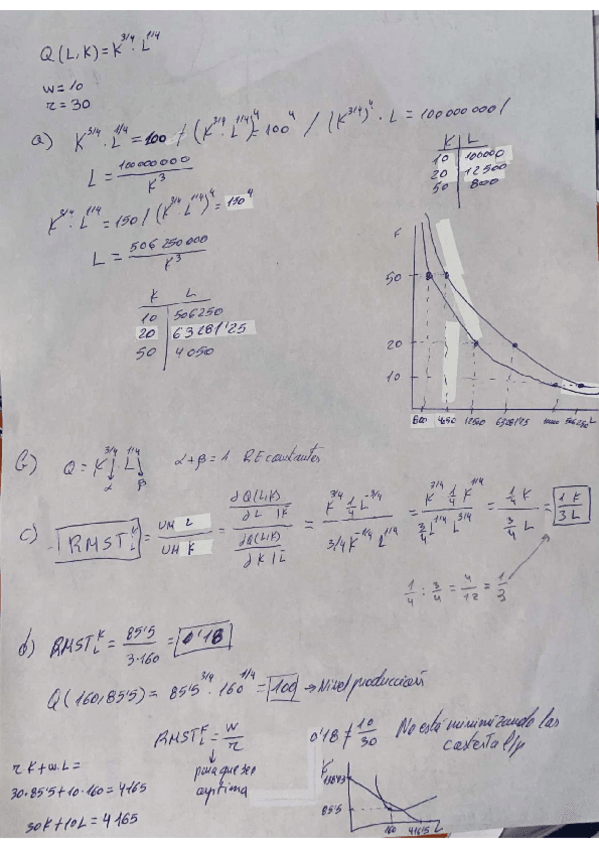 Q(L,K)=K^3/4 · L^1/4
w=10
r=30
a) K^3/4 · L^1/4 = 100 / (K^3/4 · L^1/4)^4 = 100^4 / (K^3/4)^4 · L = 100000000/
L = 100000000 / K^3
K L
10 100000
20 12500
50 800
K^3/4 · L^1/4 = 150 / (K^3/4 · L^1/4)^4 = 150^4
L = 506250000 / K^3
K L
10 506250
20 63281'25
50 4050
50
20
10
800 4050 12500 L
b) Q = K^3/4 L^1/4 α+β=1 RE constantes
α β
c) RMST_L^K = UM L / UM K = (∂Q(L,K)/∂L |K̄) / (∂Q(L,K)/∂K |L̄) = K^3/4 1/4 L^-3/4 / 3/4 K^-1/4 L^1/4 = K^3/4 1/4 K^1/4 / 3/4 L^1/4 L^3/4 = 1/4 K / 3/4 L = 1 K / 3 L
1/4 : 3/4 = 4/12 = 1/3
d) RMST_L^K = 85'5 / 3·160 = 0'18
Q(160,85'5) = 85'5^3/4 · 160^1/4 = 100 → Nivel producción
RMST_L^K = w/r 0'18 ≠ 10/30 No está minimizando los costes a l/p
para que sea óptima
rK+wL=
30·85'5+10·160=4165
30K+10L=4165
K
85'5
160 416'5 L